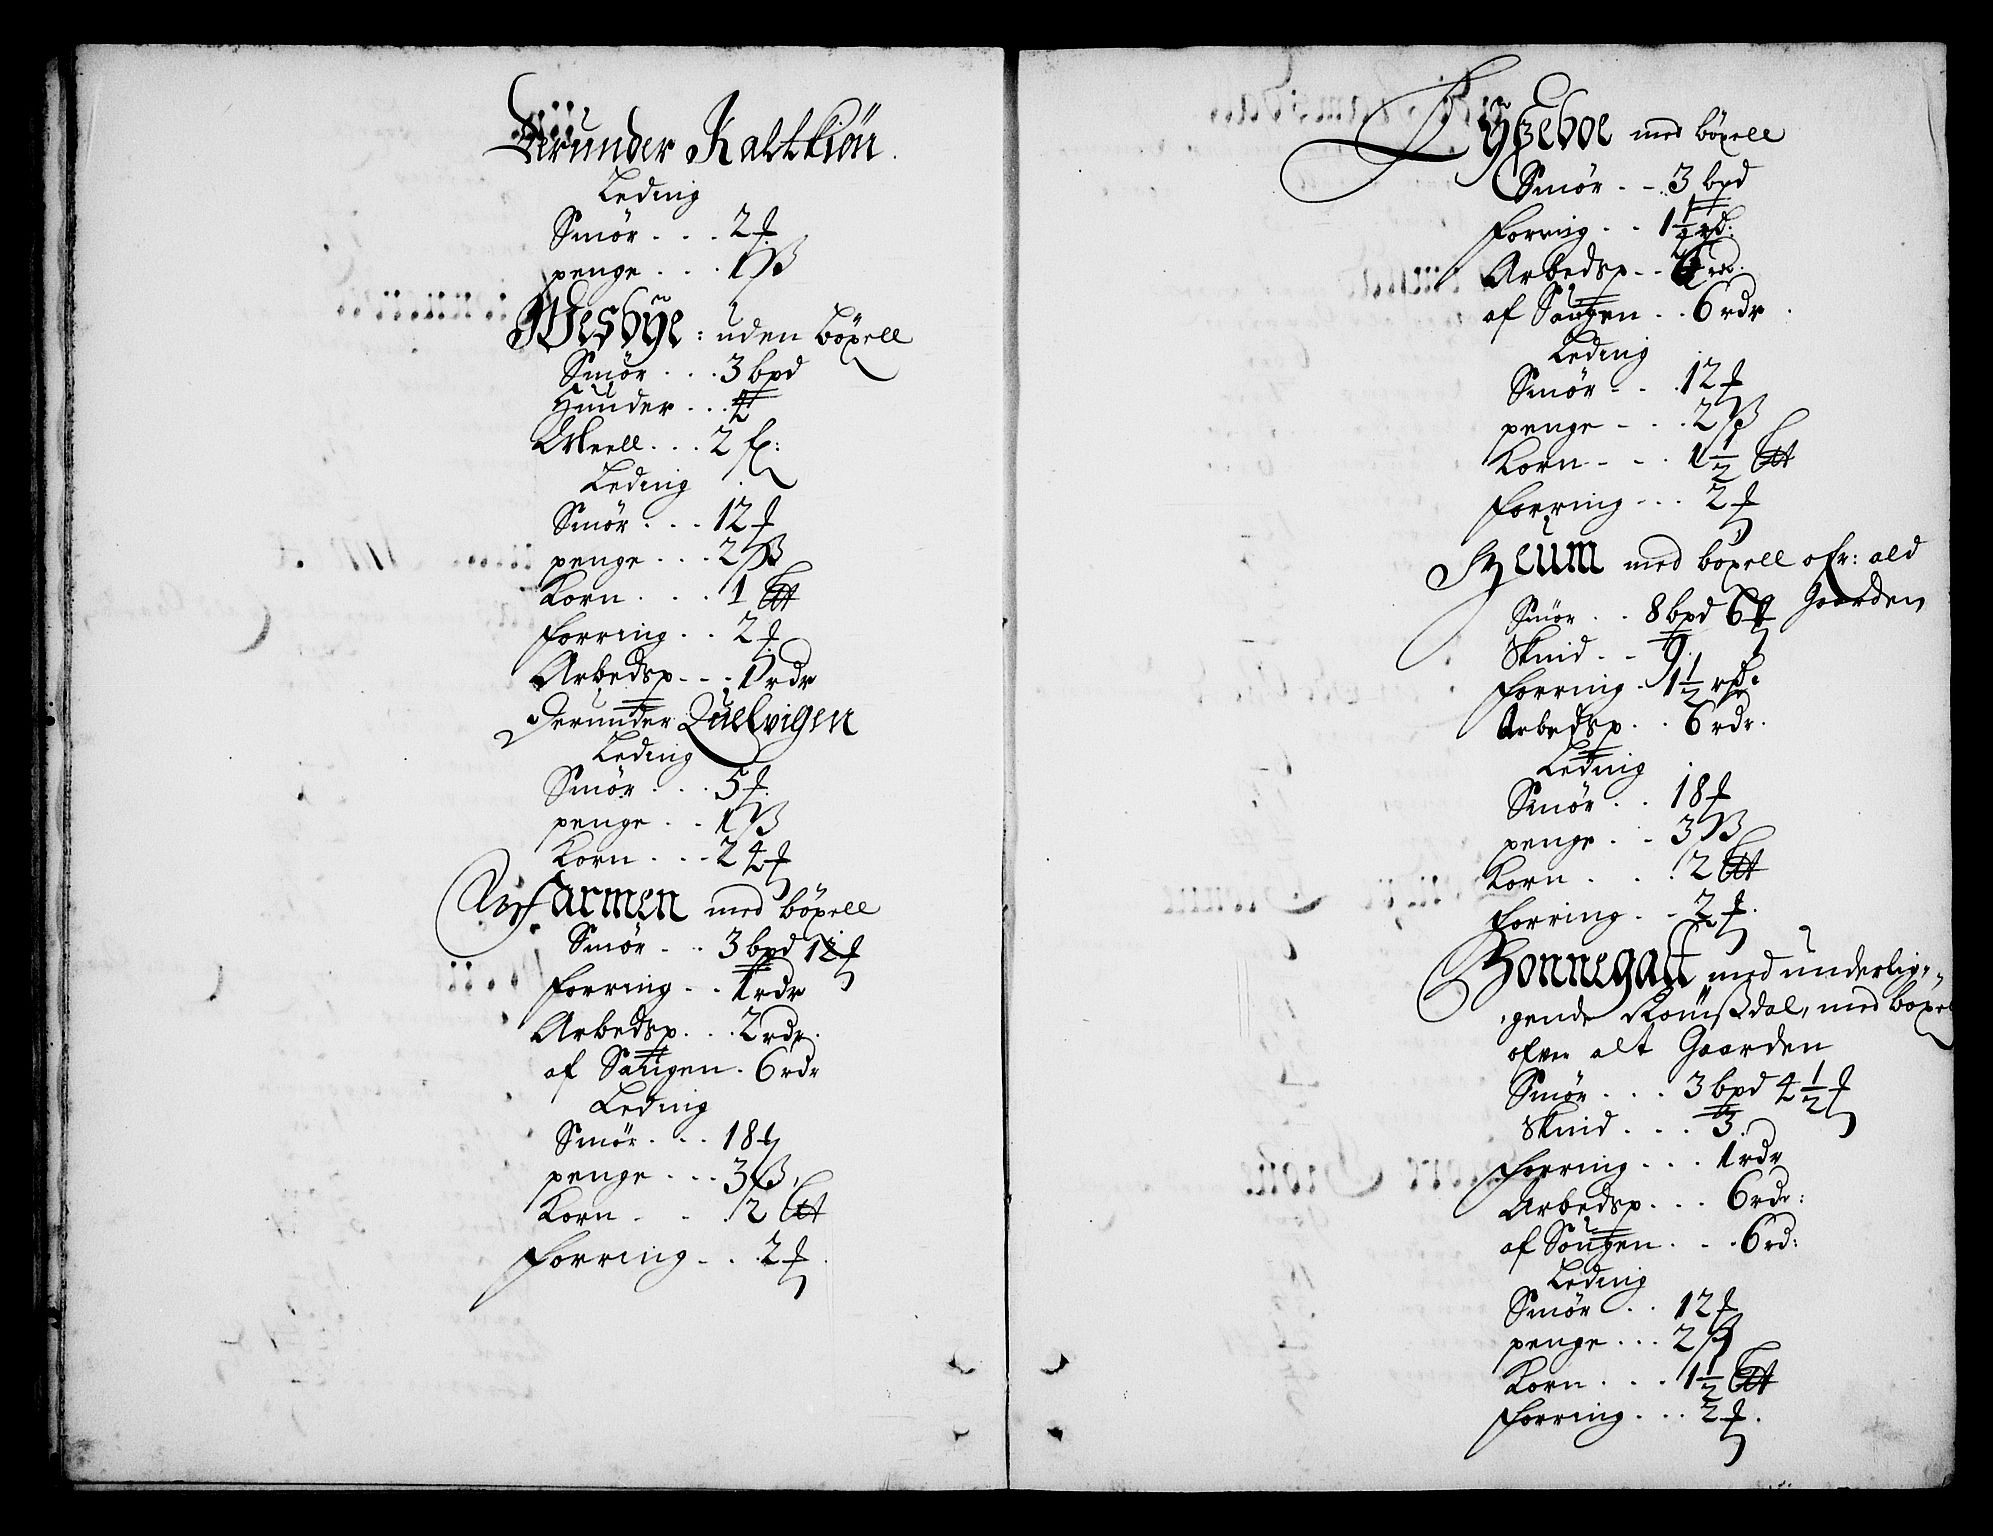 Derunder Kaltkiøn.
Leding
Smør . . . 2 ℔
penge . . . . 1 ß
Wesbÿe : uden böxell
Smør . . . 3 bpd
Huuder . . . ½
Meell . . . 2 sl:
Leding
Smør . . . 12 ℔
penge . . . 2 ß
Korn . . . . 1
forring . . 2 ℔
Arbedsp . . . 1 rdr
Derunder Quelvigen
Leding
Smør . . . 5 ℔
penge . . 1 ß
Korn . . . 24 ℔
farmen med böxell
Smør . . 3 bpd 12 ℔
forring . . 1 rdr
Arbedsp . . . 2 rdr.
af Saugen . 6 rdr
Leding
Smør . . . 18 ℔
penge . . . 3 ß.
Korn . . . 2
forring . . . 2 ℔
Lÿszeboe med böxell
Smør . . 3 bpd
forring . . 1½ rd:
Arbedsp . . 6 rdr.
af Saugen . . 6 rdr.
Leding
Smør . . . 12 ℔
penge . . . 2 ß
Korn . . . 1½
forring . . . 2 ℔
med böxell ofr: ald
Gaarden
Smør . . 8 bpd 6 ℔
Skind . . 9.
forring . 1½ rdr
Arbedsp . . 6 rdr.
Leding
Smør . . 18 ℔
penge . . 3 ß
Korn . . . 2
forring . . 2 ℔.
Honnegalt med underlig-
gende Romszdal, med böxel
ofver alt Gaarden
Smør . . . 3 bpd 4½ ℔
Skind . . . 3.
forring . . . 1 rdr
Arbedsp . . . 6 rdr:
af Saugen . . . 6 rd:
Leding
Smør . . 12 ℔
penge . . . 2 ß
Korn . . . 1½
forring . . . 2 ℔.